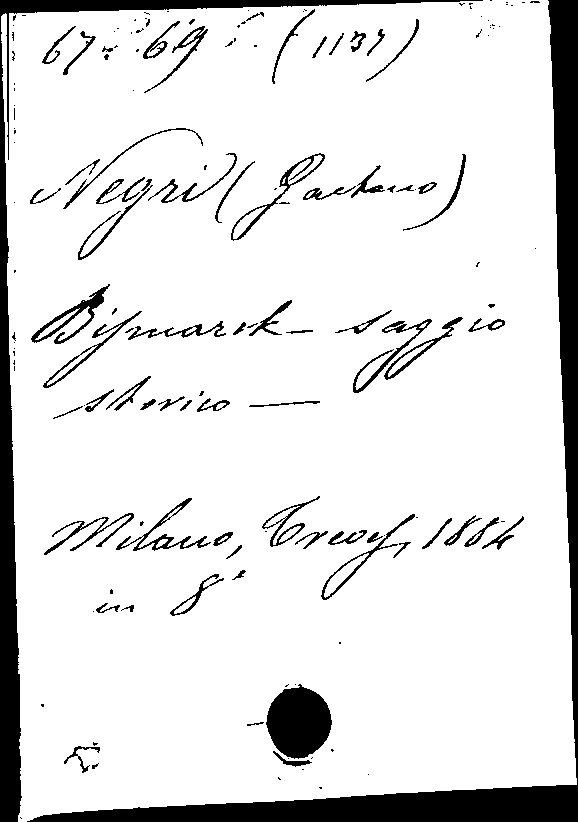 67. 69 (1137)
Negri (Gaetano)
Bismarck - saggio
storico —
Milano, Treves, 1884
in 8°